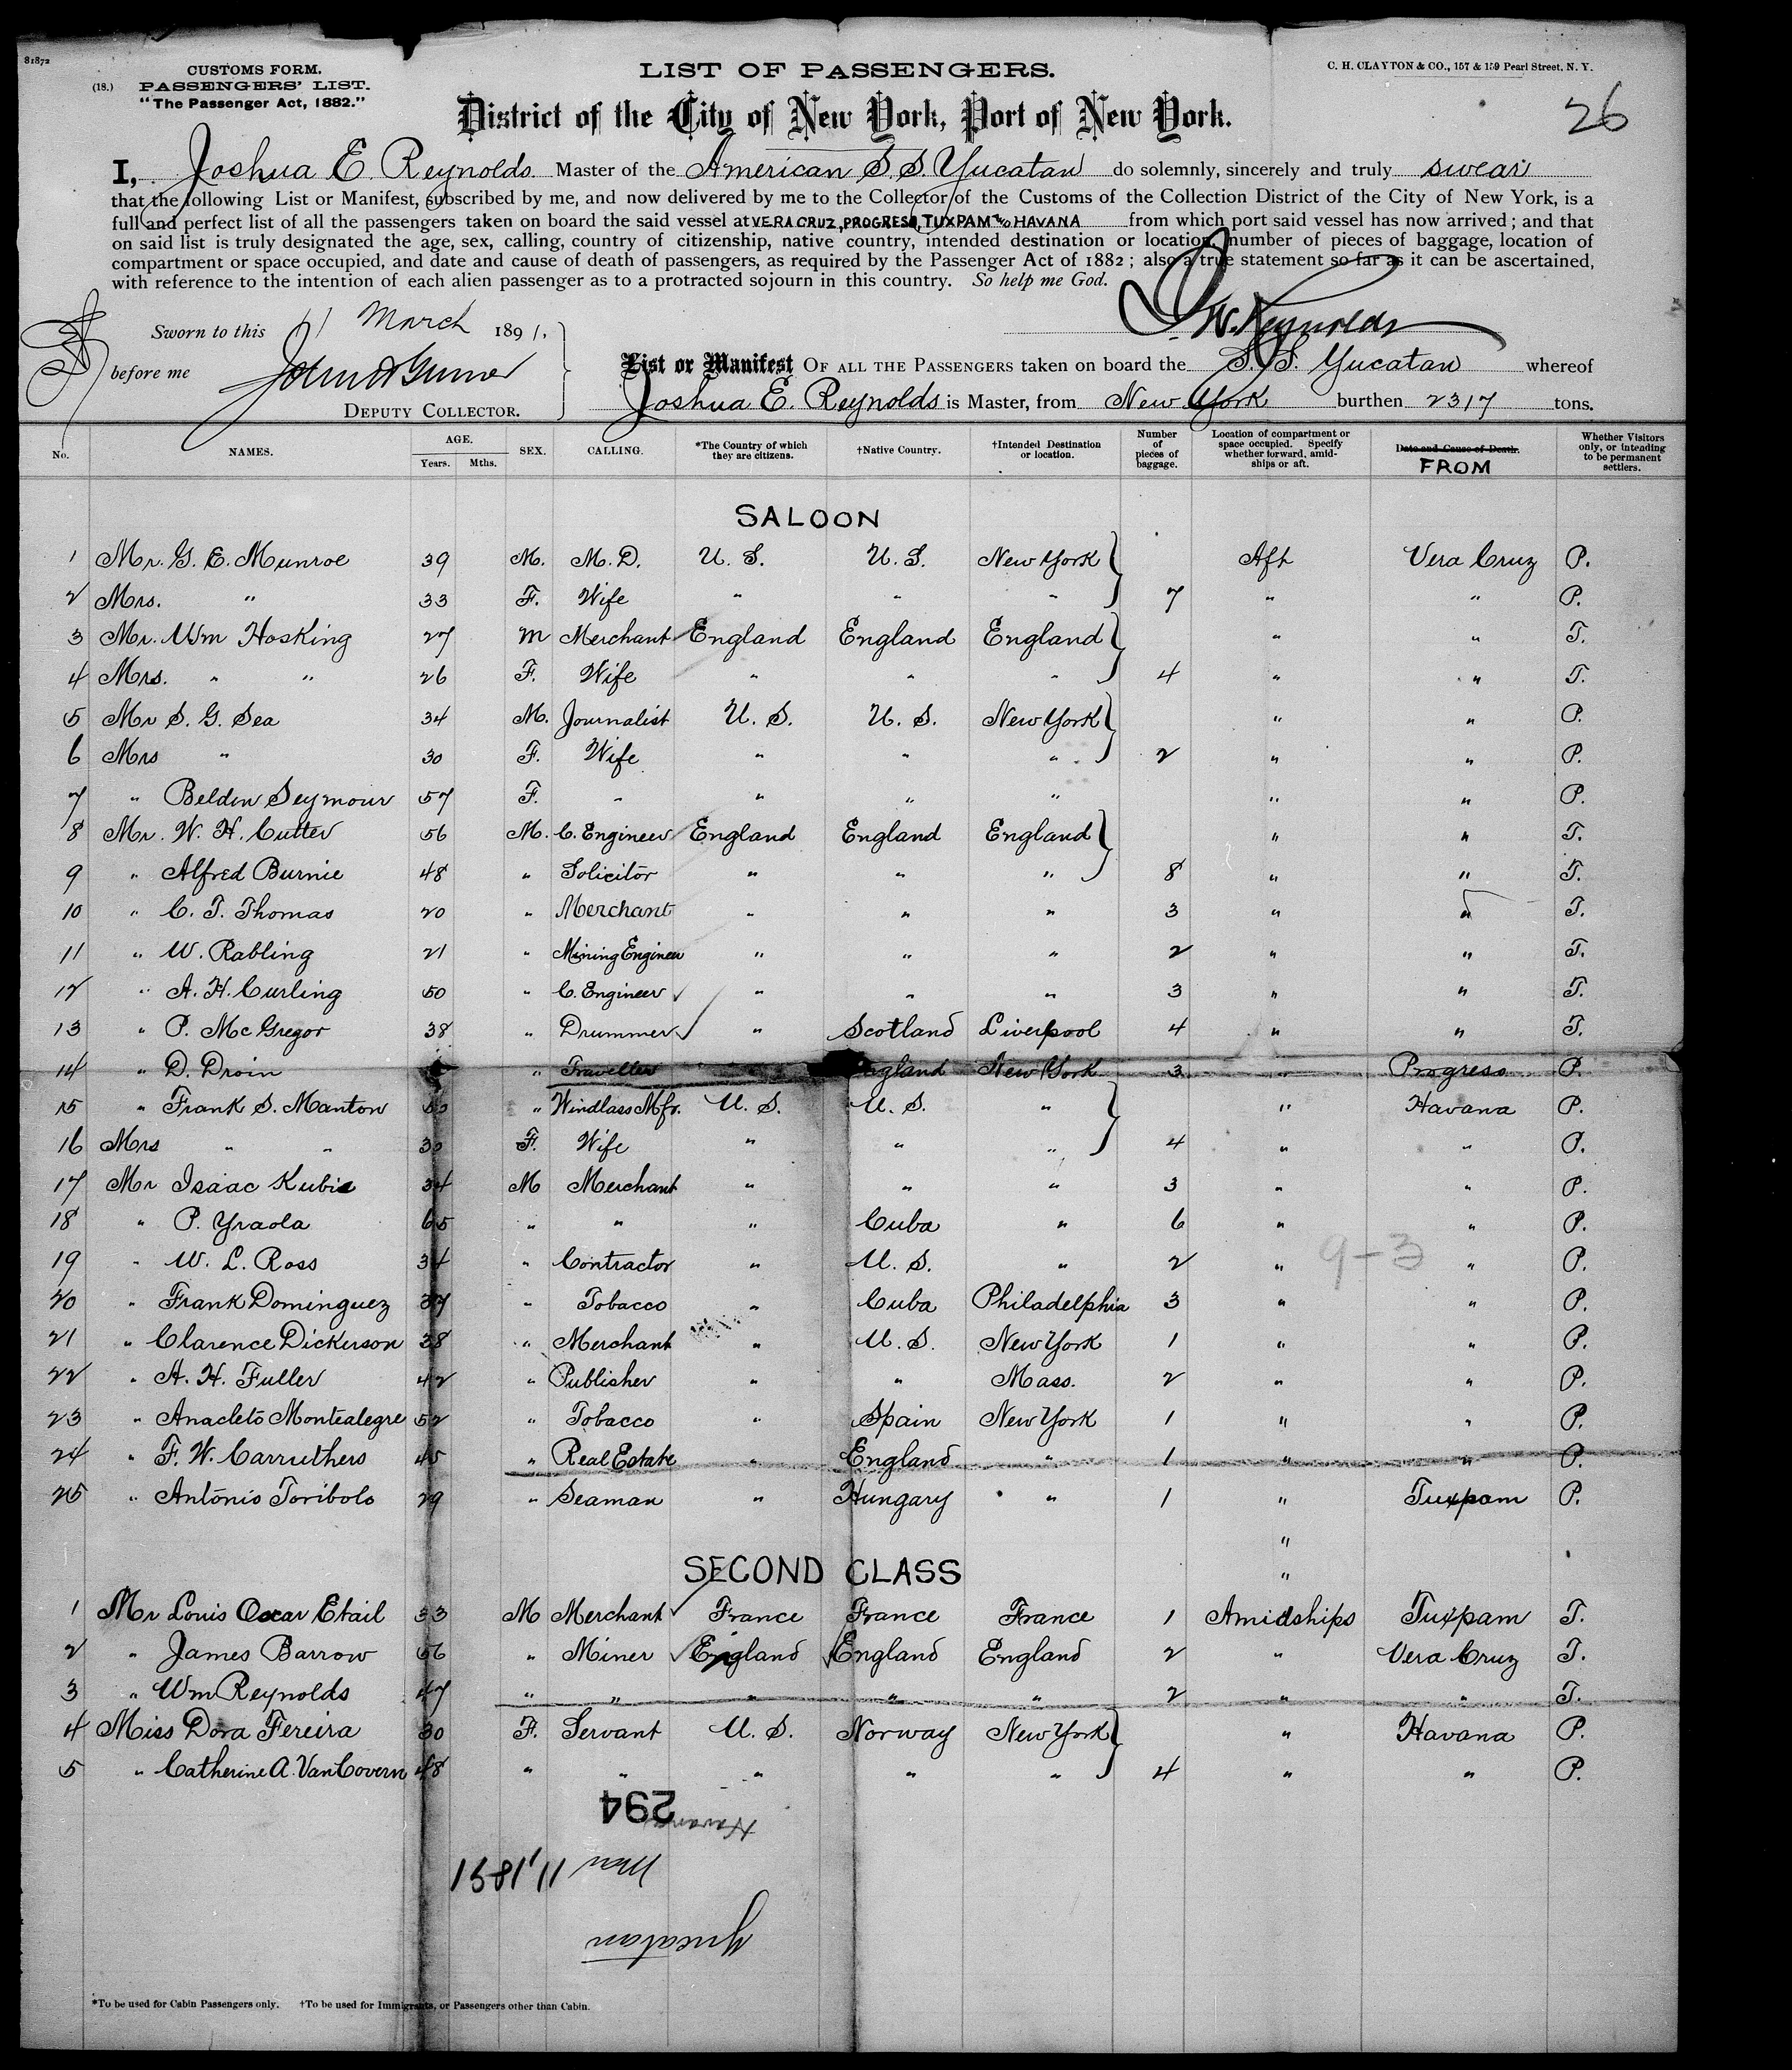 81872
CUSTOMS FORM.
(18.) PASSENGERS' LIST.
"The Passenger Act, 1882."
LIST OF PASSENGERS.
C. H. CLAYTON & CO., 157 & 159 Pearl Street, N. Y.
District of the City of New York, Port of New York.
26
I, Joshua E. Reynolds Master of the American S. S. Yucatan do solemnly, sincerely and truly swear
that the following List or Manifest, subscribed by me, and now delivered by me to the Collector of the Customs of the Collection District of the City of New York, is a
full and perfect list of all the passengers taken on board the said vessel at VERA CRUZ, PROGRESO, TUXPAM AND HAVANA from which port said vessel has now arrived; and that
on said list is truly designated the age, sex, calling, country of citizenship, native country, intended destination or location, number of pieces of baggage, location of
compartment or space occupied, and date and cause of death of passengers, as required by the Passenger Act of 1882; also a true statement so far as it can be ascertained,
with reference to the intention of each alien passenger as to a protracted sojourn in this country. So help me God.
Reynolds
Sworn to this 11 March 1891,
before me
DEPUTY COLLECTOR.
List or Manifest OF ALL THE PASSENGERS taken on board the S. S. Yucatan whereof
Joshua E. Reynolds is Master, from New York burthen 2317 tons.
No. NAMES. AGE. Years. Mths. SEX. CALLING. *The Country of which they are citizens. †Native Country. †Intended Destination or location. Number of pieces of baggage. Location of compartment or space occupied. Specify whether forward, amidships or aft. Date and Cause of Death. FROM Whether Visitors only, or intending to be permanent settlers.
SALOON
1 Mr. G. E. Munroe 39 M. M. D. U. S. U. S. New York Aft Vera Cruz P.
2 Mrs. " 33 F. Wife " " " 7 " " P.
3 Mr. Wm Hosking 27 M Merchant England England England " " T.
4 Mrs. " " 26 F. Wife " " " 4 " " T.
5 Mr S. G. Sea 34 M. Journalist U. S. U. S. New York " " P.
6 Mrs " 30 F. Wife " " " 2 " " P.
7 " Belden Seymour 57 F. " " " " " " P.
8 Mr. W. H. Cutter 56 M. C. Engineer England England England " " T.
9 " Alfred Burnie 48 " Solicitor " " " 8 " " T.
10 " C. T. Thomas 20 " Merchant " " " 3 " " T.
11 " W. Rabling 21 " Mining Engineer " " " 2 " " T.
12 " A. H. Curling 50 " C. Engineer " " " 3 " " T.
13 " P. McGregor 38 " Drummer " Scotland Liverpool 4 " " T.
14 " D. Droin " Traveller " England New York 3 " Progreso P.
15 " Frank S. Manton " Windlass Mfr. U. S. U. S. " " Havana P.
16 Mrs " " 30 F. Wife " " " 4 " " P.
17 Mr Isaac Kubie 34 M Merchant " " " 3 " " P.
18 " P. Yraola 65 " " " Cuba " 6 " " P.
19 " W. L. Ross 34 " Contractor " U. S. " 2 " " P.
9-3
20 " Frank Dominguez 37 " Tobacco " Cuba Philadelphia 3 " " P.
21 " Clarence Dickerson 38 " Merchant " U. S. New York 1 " " P.
22 " A. H. Fuller 42 " Publisher " " Mass. 2 " " P.
23 " Anacleto Montealegre 52 " Tobacco " Spain New York 1 " " P.
24 " F. W. Carruthers 45 " Real Estate " England " 1 " " P.
25 " Antonio Toribolo 29 " Seaman " Hungary " 1 " Tuxpam P.
"
SECOND CLASS
"
1 Mr Louis Oscar Etail 33 M Merchant France France France 1 Amidships Tuxpam T.
2 " James Barrow 56 " Miner England England England 2 " Vera Cruz T.
3 " Wm Reynolds 47 " " " " " 2 " " T.
4 Miss Dora Fereira 30 F. Servant U. S. Norway New York " Havana P.
5 " Catherine A. VanCovern 48 " " " " " 4 " " P.
294
Havana
Mar 11, 1891
Yucatan
*To be used for Cabin Passengers only. †To be used for Immigrants, or Passengers other than Cabin.